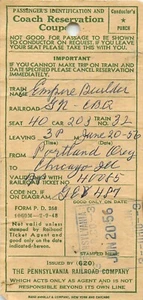 PASSENGER'S IDENTIFICATION AND
Conductor's
Coach Reservation
Coupon
PUNCH
NOT GOOD FOR PASSAGE SO SHOW
TO CONDUCTOR ON REQUEST. IF YOU LEAVE
YOUR SEAT PLEASE TAKE THIS WITH YOU.
IMPORTANT
IF YOU CANNOT MAKE THIS TRAIN AND
DATE SPECIFIED PLEASE CANCEL RESERVATION
IMMEDIATELY.
TRAIN NAME Empire Builder
GN - CBQ
SEAT 40 CAR 203 TRAIN NO. 32
LEAVING 3P June 20-56
FROM Portland Oreg
TO Chicago Ill
40065
CODE NO. ON DIAGRAM
FORM P. D. 52R
Not valid unless
stamped by Railroad
Ticket Agent and
good only on Railroad
JUN 20 56
ISSUED BY (620)
THE PENNSYLVANIA RAILROAD COMPANY
WHICH ACTS ONLY AS AGENT AND IS NOT
RESPONSIBLE BEYOND ITS OWN LINE